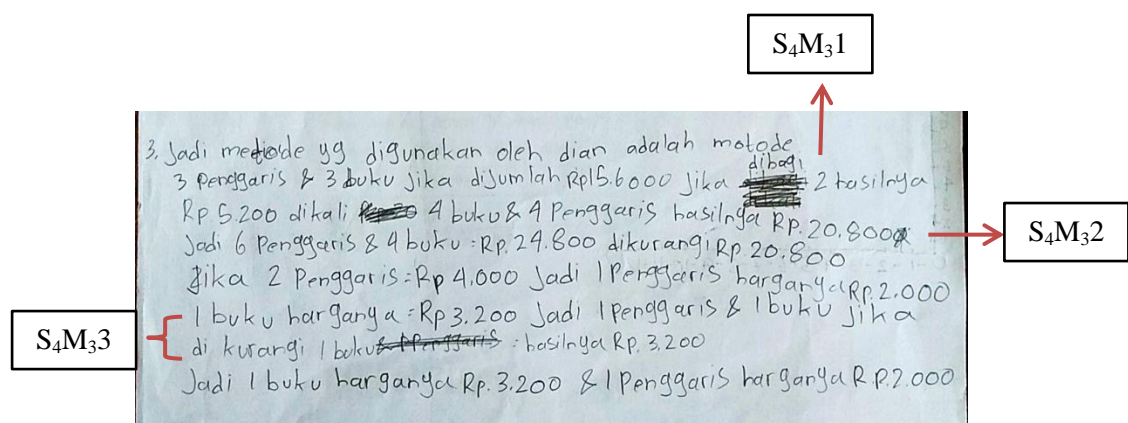 S₄M₃1
3. Jadi metode yg digunakan oleh dian adalah motode
3 Penggaris & 3 buku jika dijumlah Rp15.6000 jika dibagi 2 hasilnya
Rp.5.200 dikali 4 buku & 4 Penggaris hasilnya Rp.20.800
S₄M₃2
Jadi 6 Penggaris & 4 buku = Rp.24.800 dikurangi Rp.20.800
Jika 2 Penggaris = Rp 4.000 Jadi 1 Penggaris harganya Rp.2.000
1 buku harganya = Rp3.200 Jadi 1 Penggaris & 1 buku jika
S₄M₃3
di kurangi 1 buku = hasilnya Rp.3.200
Jadi 1 buku harganya Rp.3.200 & 1 Penggaris harganya R.P.2.000